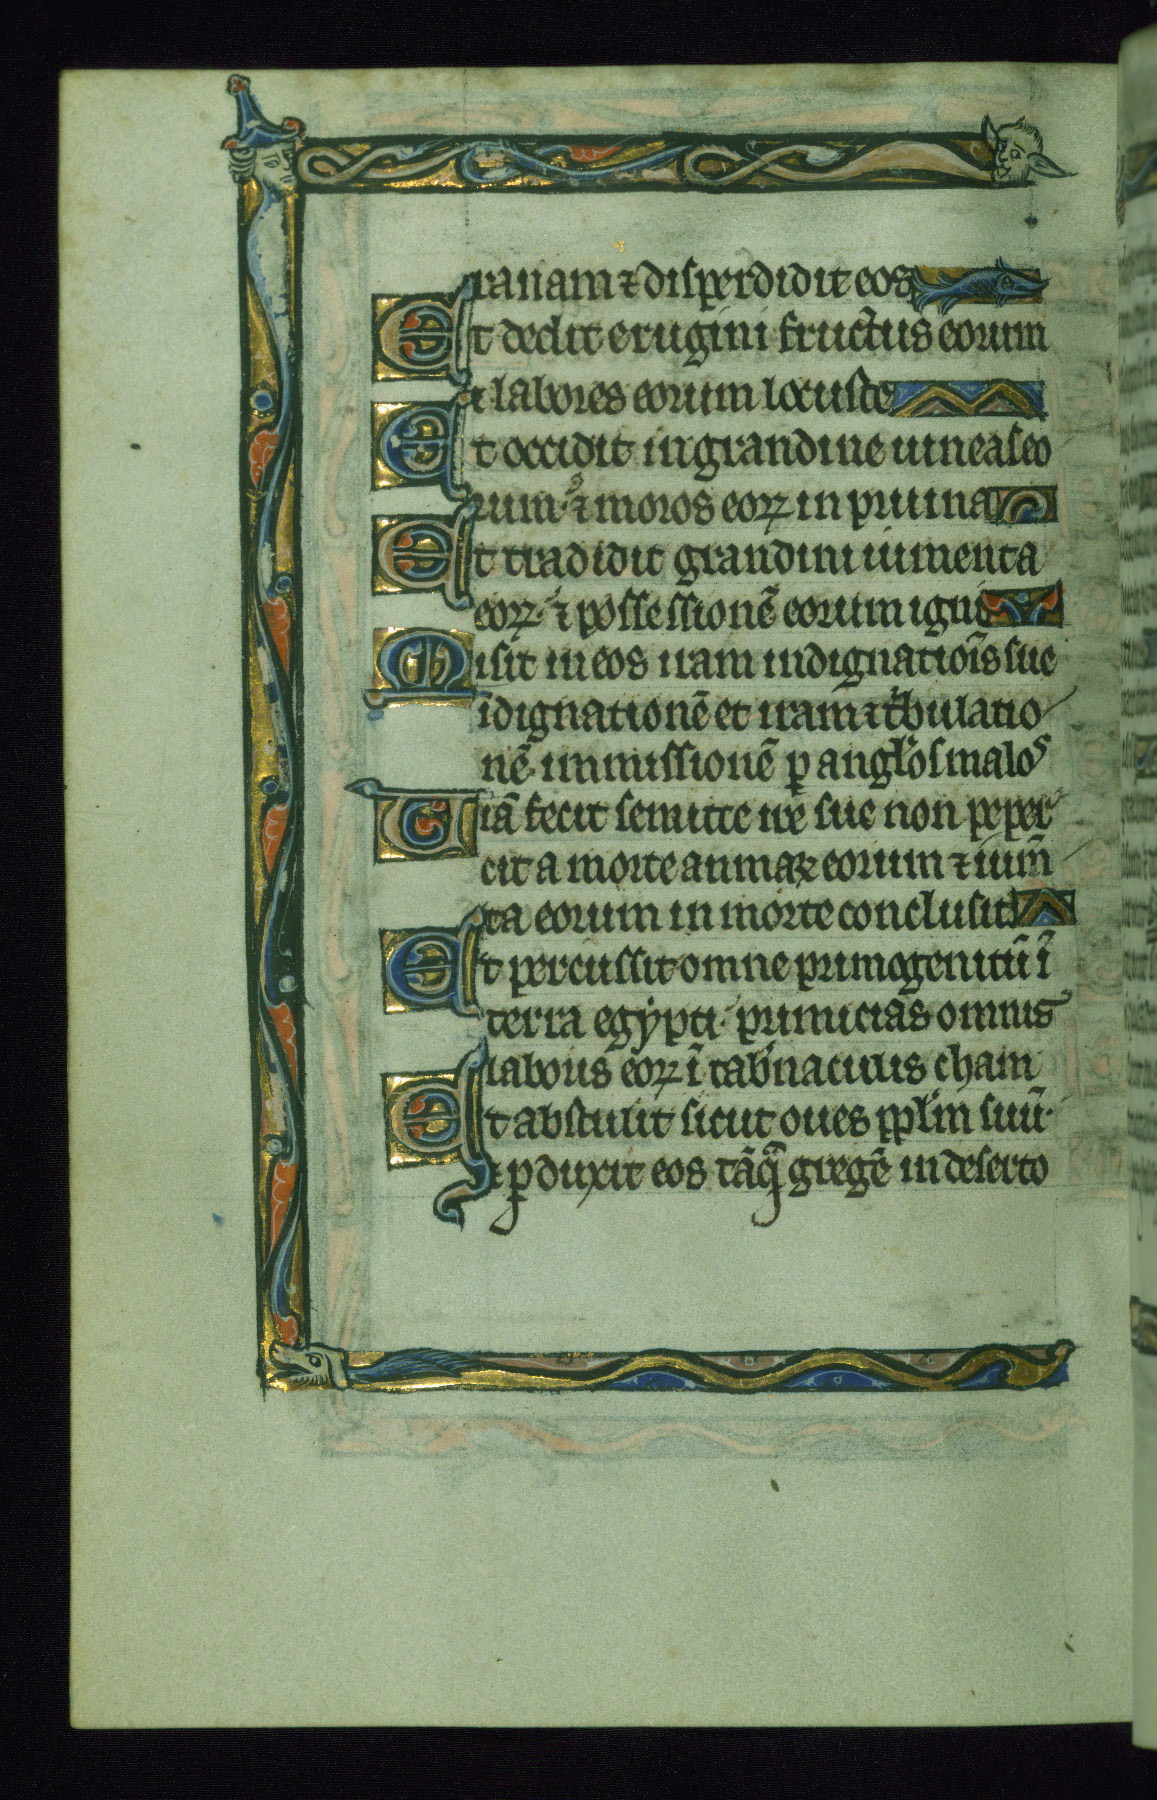 ranam ⁊ disperdidit eos
Et dedit erugini fructus eorum
⁊ labores eorum locuste
Et occidit in grandine uineas eo
rum· ⁊ moros eoꝝ in pruina
Et tradidit grandini iumenta
eoꝝ· ⁊ possessionē eorum igni
Misit in eos iram indignatiōis sue
īdignationē et iram ⁊ tͥbulatio
nē· immissionē ꝑ anglos malos
Uiā fecit semite ire sue non peper
cit a morte animaꝝ eorum ⁊ ium̄
ta eorum in morte conclusit
Et percussit omne primogenitū ī
terra egypti· primicias omnis
laboris eoꝝ ī tab̄naculis cham
Et abstulit sicut oues ppl̄m suū·
⁊ ꝑduxit eos tāq̄ gregē in deserto